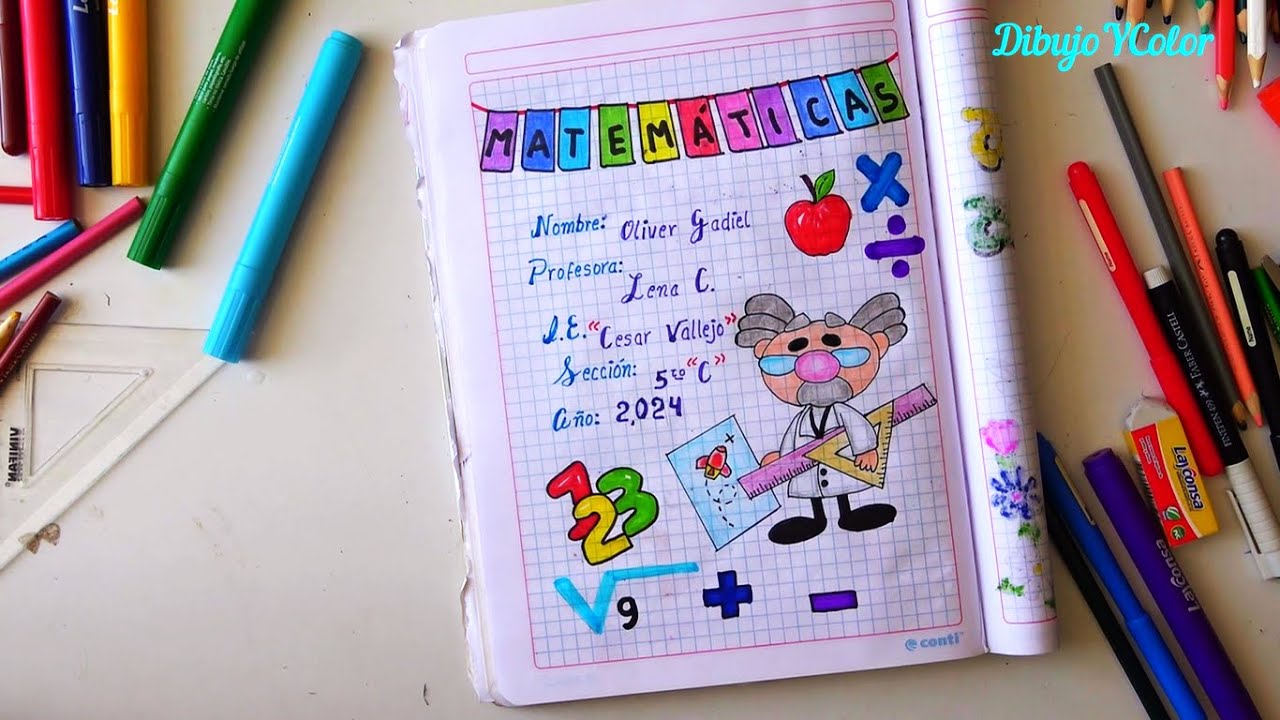 Dibujo YColor
MATEMÁTICAS
Nombre: Oliver Gadiel
Profesora: Lena C.
I.E. "Cesar Vallejo"
Sección: 5to "C"
Año: 2,024
123
√9
+ -
× ÷
conti
VINIFAN
FABER CASTELL
Layconsa
Layconsa